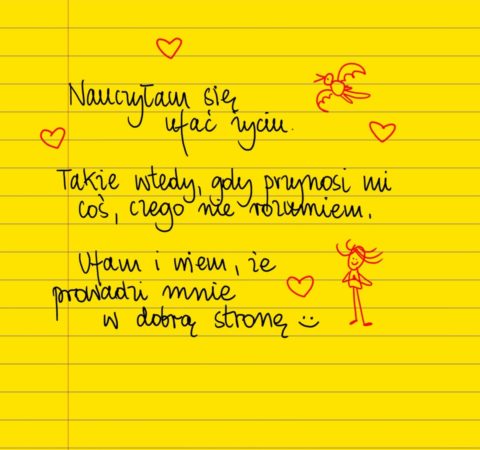 Nauczyłam się
ufać życiu.
Także wtedy, gdy przynosi mi
coś, czego nie rozumiem.
Ufam i wiem, że
prowadzi mnie
w dobrą stronę :)